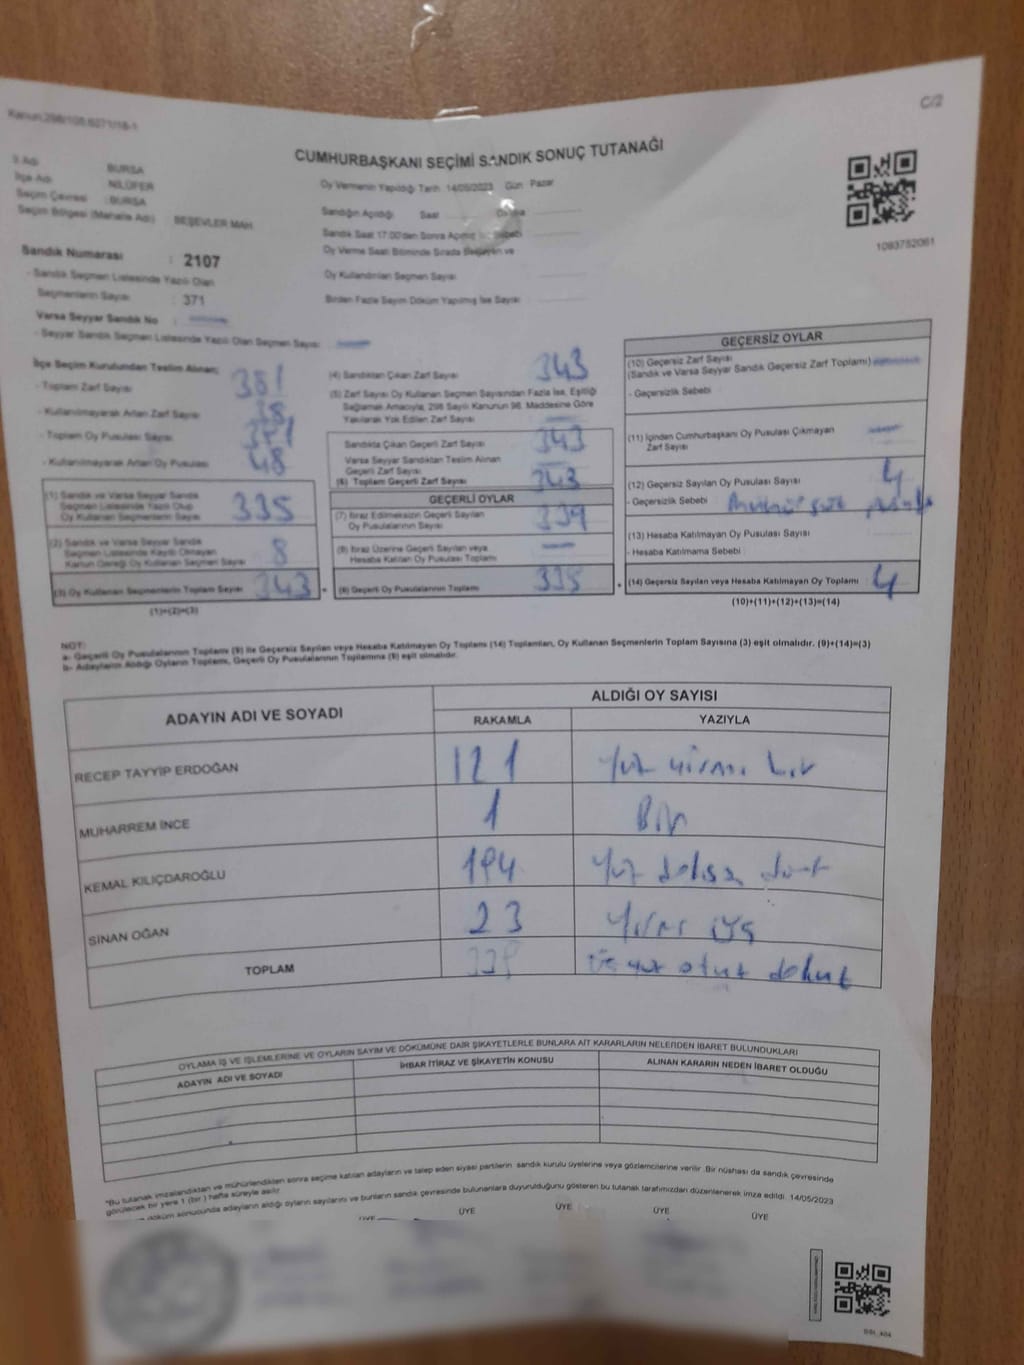 Kanun:298/105;6271/18-1
C/2
CUMHURBAŞKANI SEÇİMİ SANDIK SONUÇ TUTANAĞI
İl Adı : BURSA
İlçe Adı : NİLÜFER
Seçim Çevresi : BURSA
Seçim Bölgesi (Mahalle Adı) BEŞEVLER MAH.
Sandık Numarası : 2107
- Sandık Seçmen Listesinde Yazılı Olan
Seçmenlerin Sayısı : 371
Varsa Seyyar Sandık No :
- Seyyar Sandık Seçmen Listesinde Yazılı Olan Seçmen Sayısı :
Oy Vermenin Yapıldığı Tarih 14/05/2023 Gün Pazar
Sandığın Açıldığı Saat Dakika
Sandık Saat 17:00'den Sonra Açılmış İse Sebebi
Oy Verme Saati Bitiminde Sırada Bekleyen ve
Oy Kullandırılan Seçmen Sayısı
Birden Fazla Sayım Döküm Yapılmış İse Sayısı
1093752061
İlçe Seçim Kurulundan Teslim Alınan;
- Toplam Zarf Sayısı 381
- Kullanılmayarak Artan Zarf Sayısı 38
- Toplam Oy Pusulası Sayısı
- Kullanılmayarak Artan Oy Pusulası 48
(1) Sandık ve Varsa Seyyar Sandık
Seçmen Listesinde Yazılı Olup
Oy Kullanan Seçmenlerin Sayısı 335
(2) Sandık ve Varsa Seyyar Sandık
Seçmen Listesinde Kayıtlı Olmayan
Kanun Gereği Oy Kullanan Seçmen Sayısı 8
(3) Oy Kullanan Seçmenlerin Toplam Sayısı 343 =
(1)+(2)=(3)
(4) Sandıktan Çıkan Zarf Sayısı 343
(5) Zarf Sayısı Oy Kullanan Seçmen Sayısından Fazla İse, Eşitliği
Sağlamak Amacıyla, 298 Sayılı Kanunun 98. Maddesine Göre
Yakılarak Yok Edilen Zarf Sayısı
Sandıkta Çıkan Geçerli Zarf Sayısı 343
Varsa Seyyar Sandıktan Teslim Alınan
Geçerli Zarf Sayısı
(6) Toplam Geçerli Zarf Sayısı 343
GEÇERLİ OYLAR
(7) İtiraz Edilmeksizin Geçerli Sayılan
Oy Pusulalarının Sayısı 339
(8) İtiraz Üzerine Geçerli Sayılan veya
Hesaba Katılan Oy Pusulası Toplamı
(9) Geçerli Oy Pusulalarının Toplamı +
GEÇERSİZ OYLAR
(10) Geçersiz Zarf Sayısı
(Sandık ve Varsa Seyyar Sandık Geçersiz Zarf Toplamı)
- Geçersizlik Sebebi
(11) İçinden Cumhurbaşkanı Oy Pusulası Çıkmayan
Zarf Sayısı
(12) Geçersiz Sayılan Oy Pusulası Sayısı 4
- Geçersizlik Sebebi
(13) Hesaba Katılmayan Oy Pusulası Sayısı
- Hesaba Katılmama Sebebi
(14) Geçersiz Sayılan veya Hesaba Katılmayan Oy Toplamı 4
(10)+(11)+(12)+(13)=(14)
NOT:
a- Geçerli Oy Pusulalarının Toplamı (9) ile Geçersiz Sayılan veya Hesaba Katılmayan Oy Toplamı (14) Toplamları, Oy Kullanan Seçmenlerin Toplam Sayısına (3) eşit olmalıdır. (9)+(14)=(3)
b- Adayların Aldığı Oyların Toplamı, Geçerli Oy Pusulalarının Toplamına (9) eşit olmalıdır.
ADAYIN ADI VE SOYADI
ALDIĞI OY SAYISI
RAKAMLA YAZIYLA
RECEP TAYYİP ERDOĞAN 121 Yüz yirmi bir
MUHARREM İNCE 1 Bir
KEMAL KILIÇDAROĞLU 194 Yüz doksan dört
SİNAN OĞAN 23 Yirmi üç
TOPLAM 339 Üç yüz otuz dokuz
OYLAMA İŞ VE İŞLEMLERİNE VE OYLARIN SAYIM VE DÖKÜMÜNE DAİR ŞİKAYETLERLE BUNLARA AİT KARARLARIN NELERDEN İBARET BULUNDUKLARI
ADAYIN ADI VE SOYADI
İHBAR İTİRAZ VE ŞİKAYETİN KONUSU
ALINAN KARARIN NEDEN İBARET OLDUĞU
"Bu tutanak imzalandıktan ve mühürlendikten sonra seçime katılan adayların ve talep eden siyasi partilerin sandık kurulu üyelerine veya gözlemcilerine verilir .Bir nüshası da sandık çevresinde
görülecek bir yere 1 (bir ) hafta süreyle asılır.
döküm sonucunda adayların aldığı oyların sayılarını ve bunların sandık çevresinde bulunanlara duyurulduğunu gösteren bu tutanak tarafımızdan düzenlenerek imza edildi. 14/05/2023
ÜYE ÜYE ÜYE ÜYE ÜYE